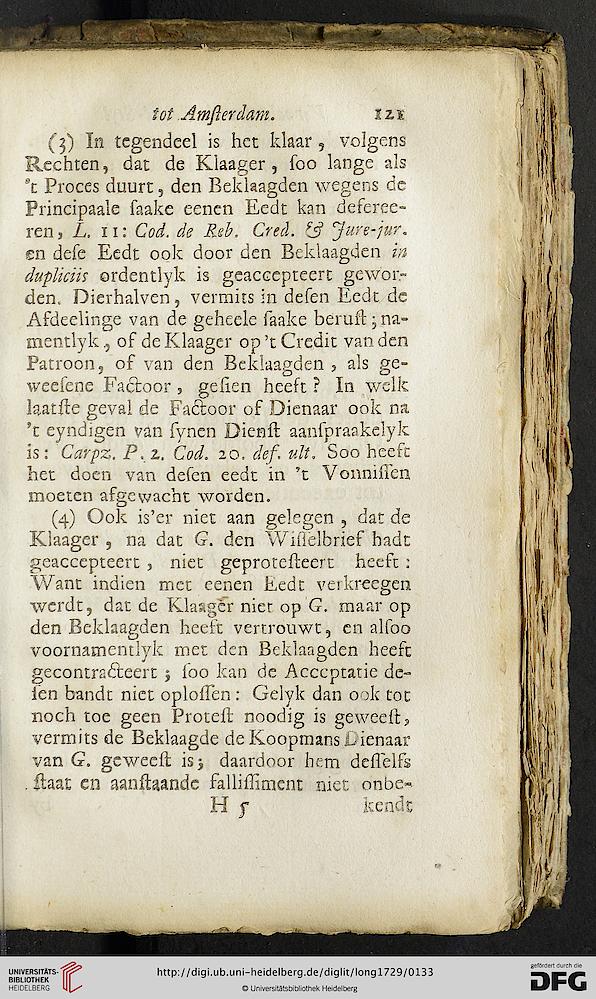 tot Amſterdam. 121
(3) In tegendeel is het klaar, volgens
Rechten, dat de Klaager, ſoo lange als
't Proces duurt, den Beklaagden wegens de
Principaale ſaake eenen Eedt kan deferee-
ren, L. 11: Cod. de Reb. Cred. & Jure-jur.
en deſe Eedt ook door den Beklaagden in
dupliciis ordentlyk is geaccepteert gewor-
den. Dierhalven, vermits in deſen Eedt de
Afdeelinge van de geheele ſaake beruſt; na-
mentlyk, of de Klaager op 't Credit van den
Patroon, of van den Beklaagden, als ge-
weeſene Factoor, geſien heeft? In welk
laatſte geval de Factoor of Dienaar ook na
't eyndigen van ſynen Dienſt aanſpraakelyk
is: Carpz. P. 2. Cod. 20. def. ult. Soo heeft
het doen van deſen eedt in 't Vonniſſen
moeten afgewacht worden.
(4) Ook is'er niet aan gelegen, dat de
Klaager, na dat G. den Wiſſelbrief hadt
geaccepteert, niet geproteſteert heeft:
Want indien met eenen Eedt verkreegen
werdt, dat de Klaager niet op G. maar op
den Beklaagden heeft vertrouwt, en alſoo
voornamentlyk met den Beklaagden heeft
gecontracteert; ſoo kan de Acceptatie de-
ſen bandt niet oploſſen: Gelyk dan ook tot
noch toe geen Proteſt noodig is geweeſt,
vermits de Beklaagde de Koopmans Dienaar
van G. geweeſt is; daardoor hem deſſelfs
ſtaat en aanſtaande falliſſiment niet onbe-
H 5 kendt
UNIVERSITÄTS-
BIBLIOTHEK
HEIDELBERG
http://digi.ub.uni-heidelberg.de/diglit/long1729/0133
© Universitätsbibliothek Heidelberg
gefördert durch die
DFG